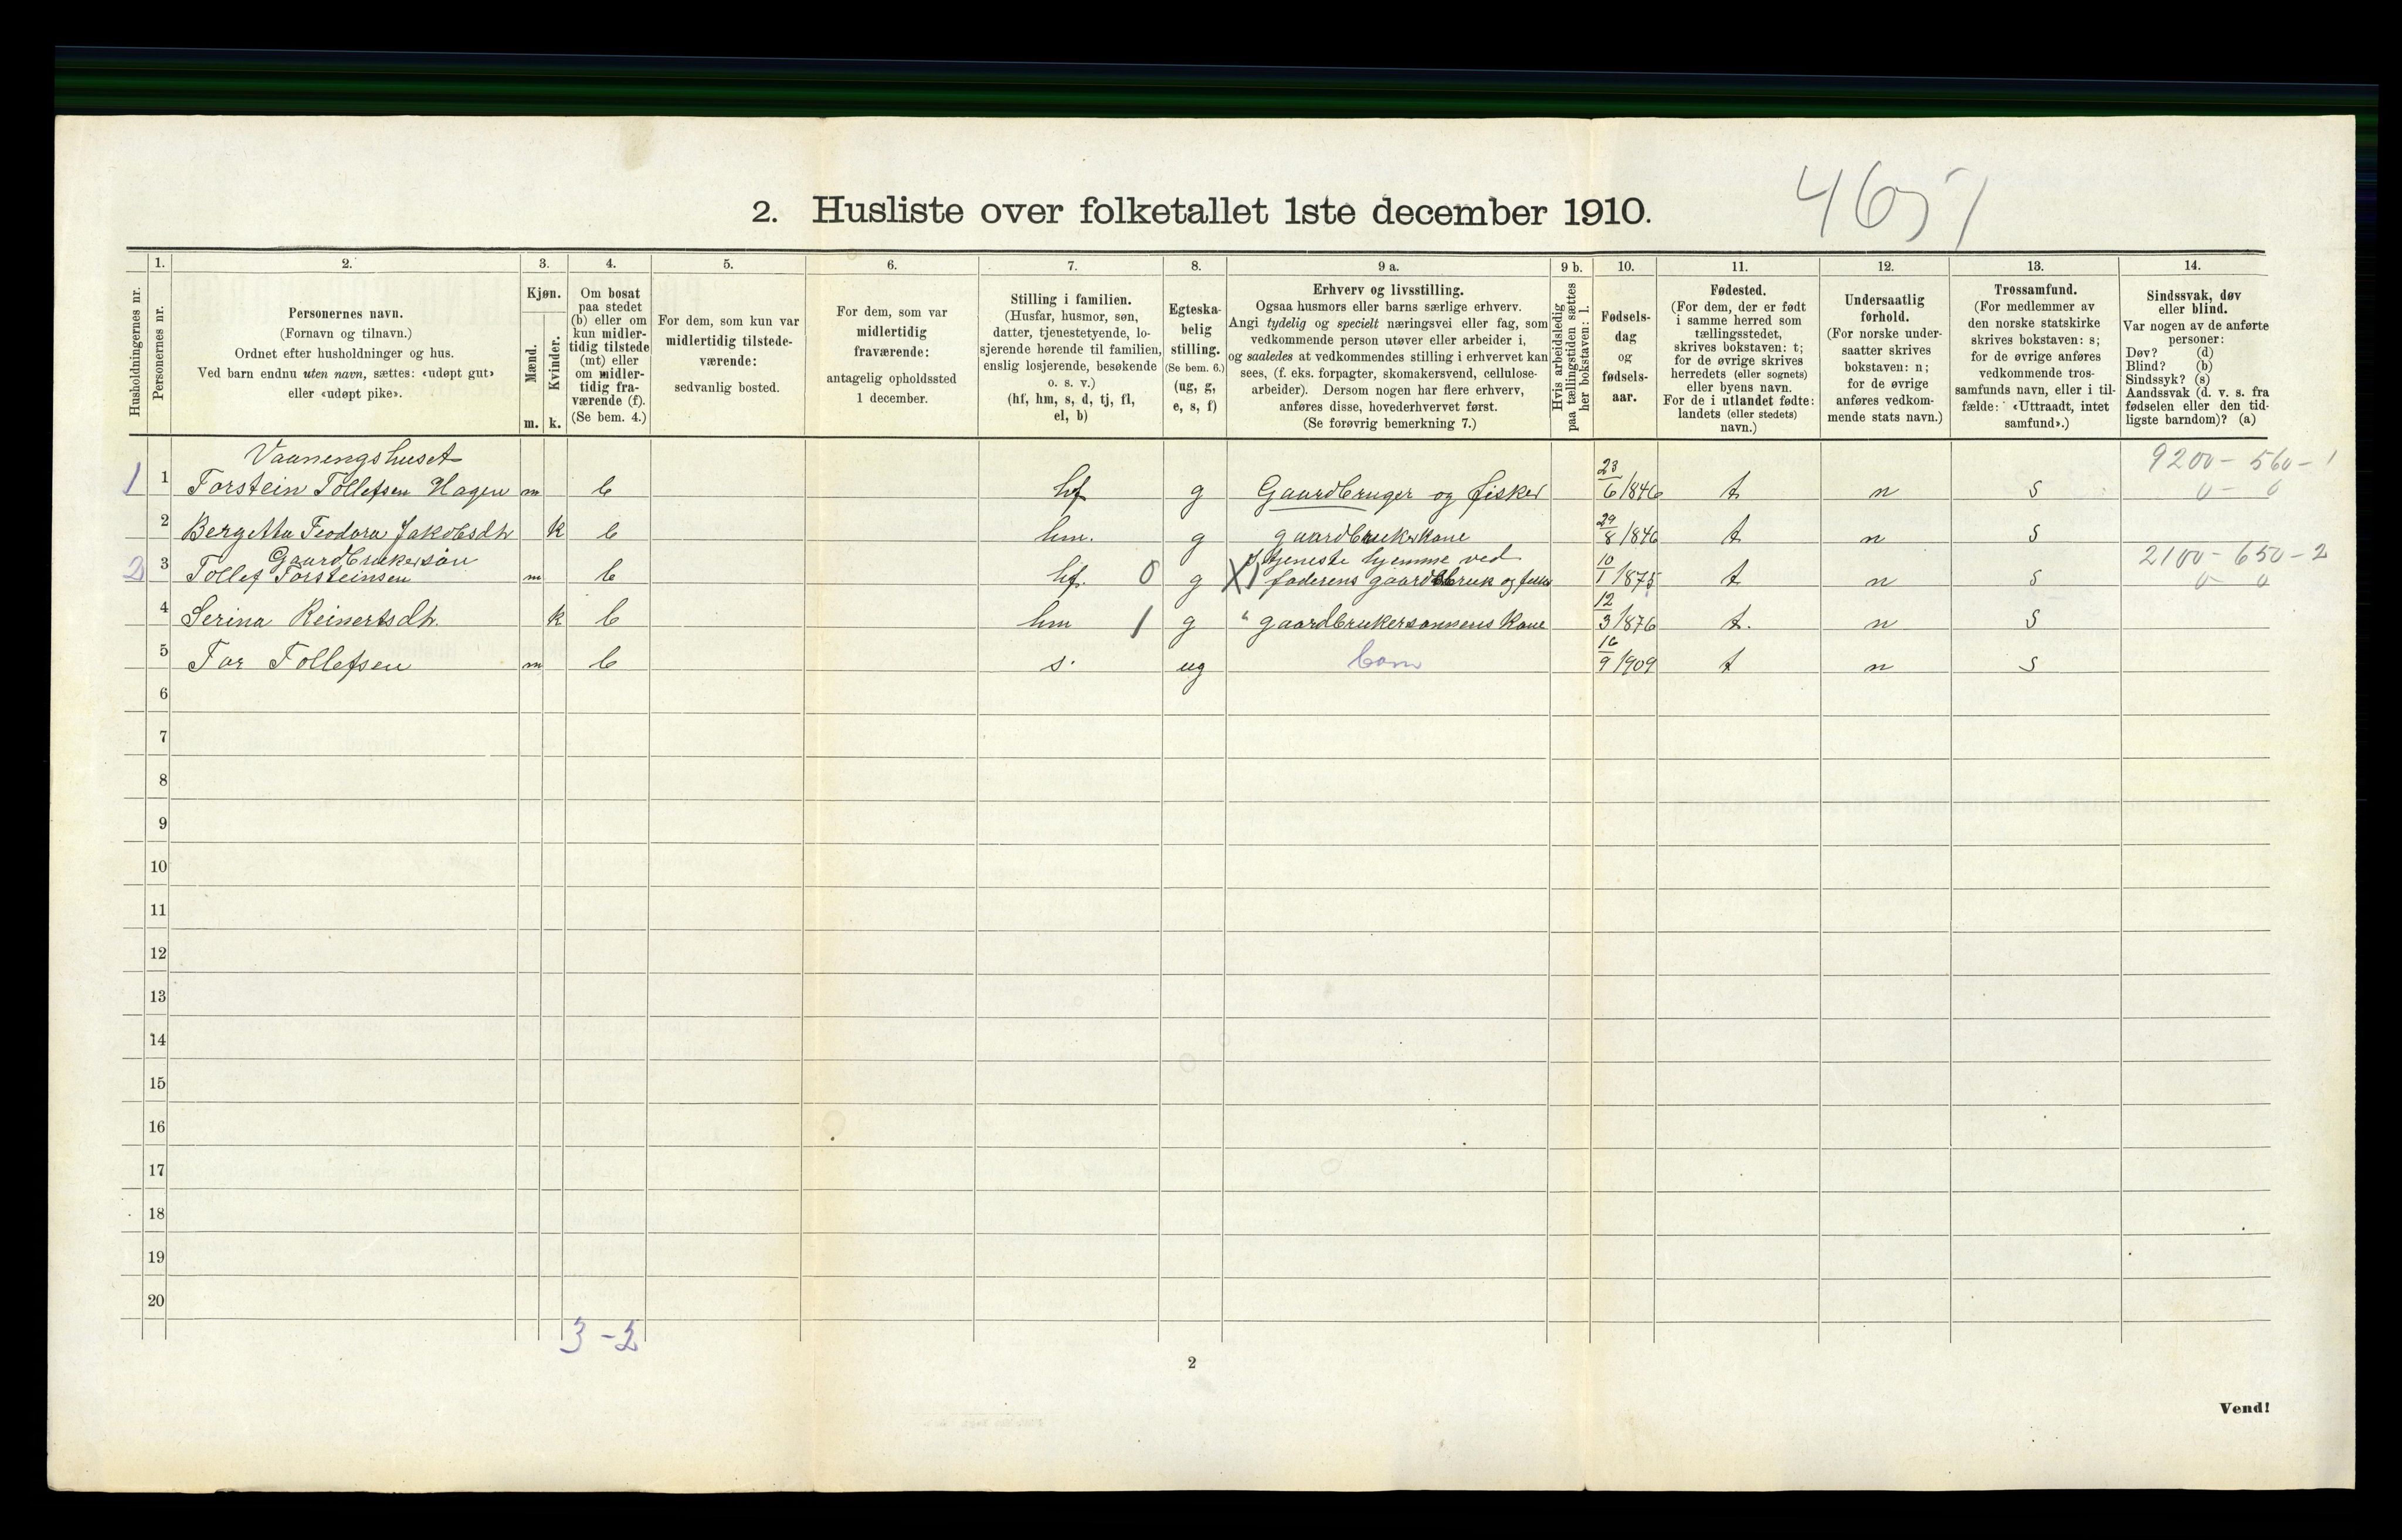 4651
2. Husliste over folketallet 1ste december 1910.
Husholdningernes nr.
1.
Personernes nr.
2.
Personernes navn.
(Fornavn og tilnavn.)
Ordnet efter husholdninger og hus.
Ved barn endnu uten navn, sættes: «udøpt gut»
eller «udøpt pike».
3.
Kjøn.
Mænd.
Kvinder.
m. k.
4.
Om bosat
paa stedet
(b) eller om
kun midler-
tidig tilstede
(mt) eller
om midler-
tidig fra-
værende (f).
(Se bem. 4.)
5.
For dem, som kun var
midlertidig tilstede-
værende:
sedvanlig bosted.
6.
For dem, som var
midlertidig
fraværende:
antagelig opholdssted
1 december.
7.
Stilling i familien.
(Husfar, husmor, søn,
datter, tjenestetyende, lo-
sjerende hørende til familien,
enslig losjerende, besøkende
o. s. v.)
(hf, hm, s, d, tj, fl,
el, b)
8.
Egteska-
belig
stilling.
(Se bem. 6.)
(ug, g,
e, s, f)
9 a.
Erhverv og livsstilling.
Ogsaa husmors eller barns særlige erhverv.
Angi tydelig og specielt næringsvei eller fag, som
vedkommende person utøver eller arbeider i,
og saaledes at vedkommendes stilling i erhvervet kan
sees, (f. eks. forpagter, skomakersvend, cellulose-
arbeider). Dersom nogen har flere erhverv,
anføres disse, hovederhvervet først.
(Se forøvrig bemerkning 7.)
9 b.
Hvis arbeidsledig
paa tællingstiden sættes
her bokstaven: l.
10.
Fødsels-
dag
og
fødsels-
aar.
11.
Fødested.
(For dem, der er født
i samme herred som
tællingsstedet,
skrives bokstaven: t;
for de øvrige skrives
herredets (eller sognets)
eller byens navn.
For de i utlandet fødte:
landets (eller stedets)
navn.)
12.
Undersaatlig
forhold.
(For norske under-
saatter skrives
bokstaven: n;
for de øvrige
anføres vedkom-
mende stats navn.)
13.
Trossamfund.
(For medlemmer av
den norske statskirke
skrives bokstaven: s;
for de øvrige anføres
vedkommende tros-
samfunds navn, eller i til-
fælde: «Uttraadt, intet
samfund».)
14.
Sindssvak, døv
eller blind.
Var nogen av de anførte
personer:
Døv? (d)
Blind? (b)
Sindssyk? (s)
Aandssvak (d. v. s. fra
fødselen eller den tid-
ligste barndom)? (a)
Vaaningshuset
9200 - 560 - 1
1 1 Torstein Tollefsen Hagen m b hf g Gaardbruger og fisker 23/6 1846 t n s 0 - 0
2 Bergitta Teodora Jakobsdtr k b hm. g gaardbrukerkone 29/8 1846 t n s
Gaardbrukersøn
tjeneste hjemme ved
2100 - 650 - 2
2 3 Tollef Torsteinsen m b hf. 0 g X faderens gaardsbruk og 10/1 1875 t n s 0 0
4 Serina Reinertsdtr. k b hm 1 g " gaardbrukersønnens kone 12/3 1876 t. n s
5 Tor Tollefsen m b s. ug barn 16/9 1909 t n s
6
7
8
9
10
11
12
13
14
15
16
17
18
19
20
3 - 2
2
Vend!